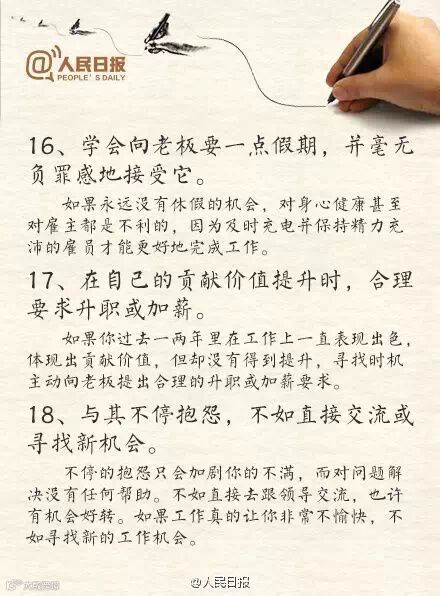 @人民日报
PEOPLE'S DAILY
16、学会向老板要一点假期，并毫无
负罪感地接受它。
如果永远没有休假的机会，对身心健康甚至
对雇主都是不利的，因为及时充电并保持精力充
沛的雇员才能更好地完成工作。
17、在自己的贡献价值提升时，合理
要求升职或加薪。
如果你过去一两年里在工作上一直表现出色，
体现出贡献价值，但却没有得到提升，寻找时机
主动向老板提出合理的升职或加薪要求。
18、与其不停抱怨，不如直接交流或
寻找新机会。
不停的抱怨只会加剧你的不满，而对问题解
决没有任何帮助。不如直接去跟领导交流，也许
有机会好转。如果工作真的让你非常不愉快，不
如寻找新的工作机会。
@人民日报